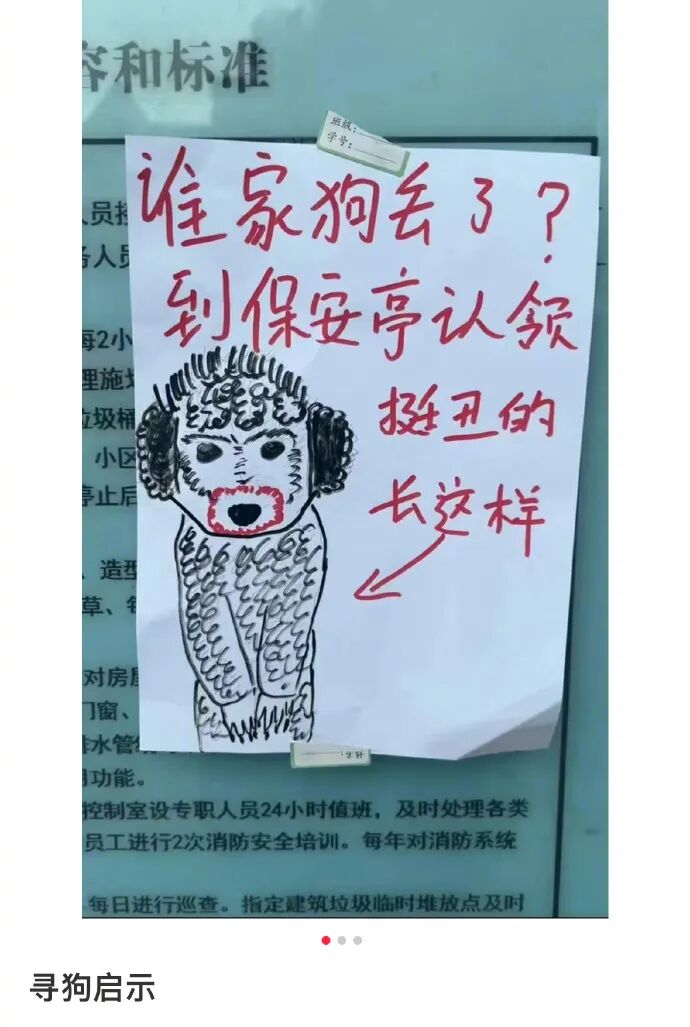 容和标准
班级:
学号:
谁家狗丢了?
到保安亭认领
挺丑的
长这样
人员接
务人员
每2小
理施
垃圾桶
小区
停止后
、造型
草、每
对房屋
门窗、
排水管
用功能。
控制室设专职人员24小时值班，及时处理各类
员工进行2次消防安全培训。每年对消防系统
每日进行巡查。指定建筑垃圾临时堆放点及时
寻狗启示